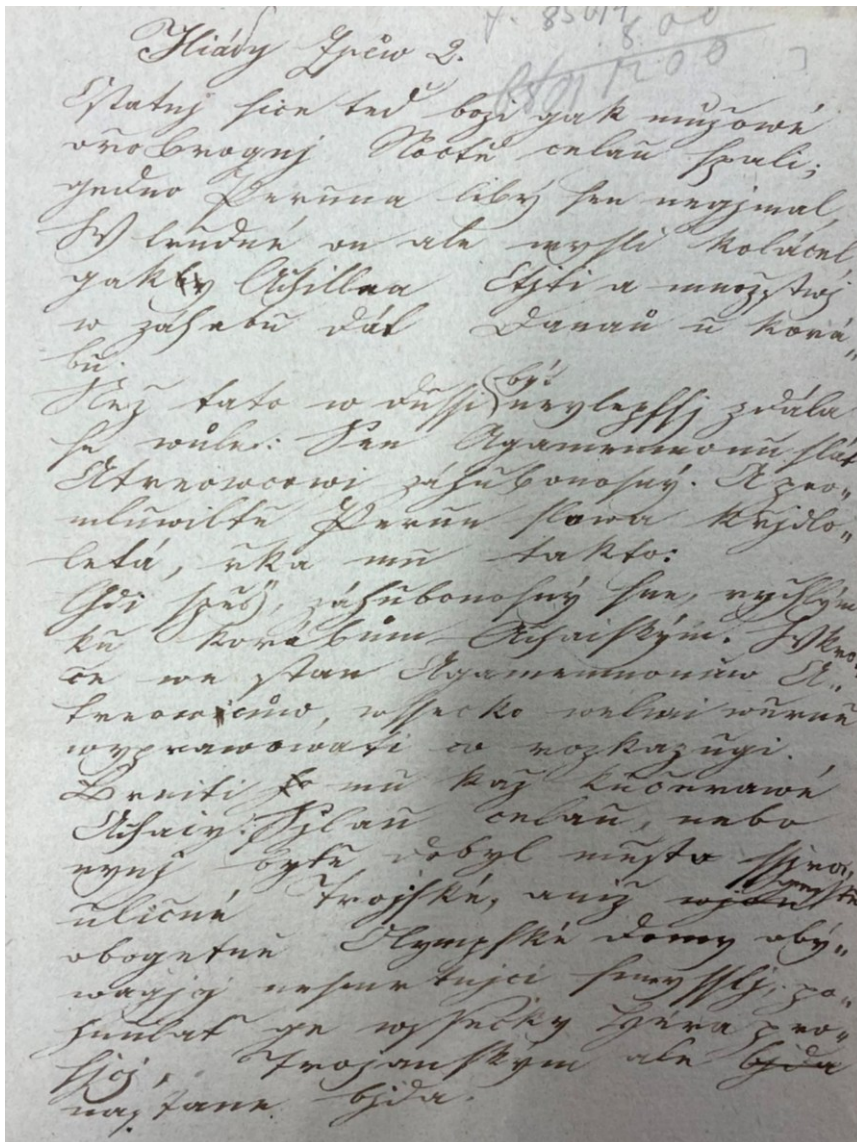 Iliády Zpěw 2.
Ostatnj sice teď bozi gak mužowé
orobrognj Nocťu celau spali;
gedno Peruna libý sen negjmal,
W trudné on ale mysli kolácel
gakby Achillea Ctjti a množstwj
w záhubu dát Danaů u korá„
bů.
Než tato w dussi být neylepssj zdála
se wůle: Sen Agamemnonu slát
Atreowcowi záhubonosný. A pro„
mluwiltě Perun slowa křjdlo„
letá, řka mu takto:
Gdi spěš, záhubonosný sne, rychlým
ku korábům Achaiským. Wkro„
če we stan Agamemnonůw A„
treowicůw, wssecko welmi wěrně
wyprawowati co rozkazugi.
Broiti mu kaž kučerawé
Achaiy: Sylau celau, nebo
nynj byť dobyl města ssiro„
uličné Trojské, aniž gesstě
obogetně Olympské domy obý„
wagjcj nesmrtedlnj smysslj, po„
hnulať ge wssecky Héra pro„
sjcj, Trojanským ale bjda
nastane bjda.